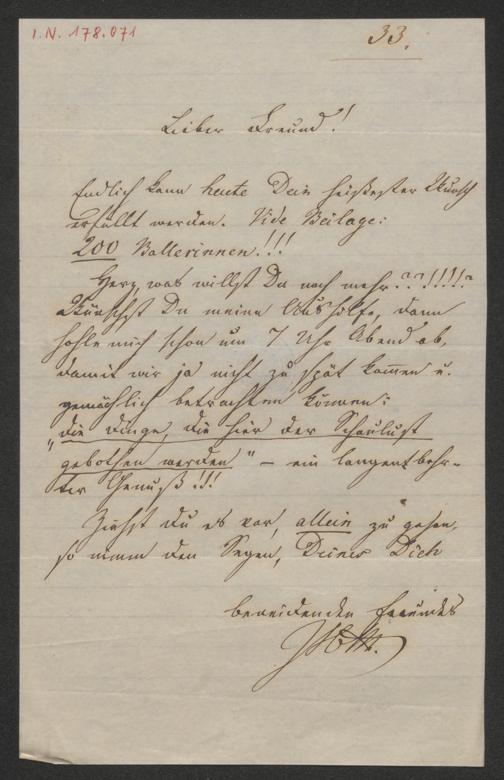 I.N. 178.071
33.
Lieber Freund!
Endlich kann heute Dein heißester Wunsch
erfüllt werden. Vide Beilage:
200 Ballerinnen!!!
Herz, was willst Du noch mehr??!!!!?
Wünschst Du meine Aushilfe, dann
hohle mich schon um 7 Uhr Abend ab,
damit wir ja nicht zu spät kommen u.
gemächlich betrachten können:
„die Dinge, die hier der Schaulust
gebothen werden" – ein langentbehr-
ter Genuß!!!
Ziehst Du es vor, allein zu gehen,
so nimm den Segen, Deines Dich
beneidenden Freundes